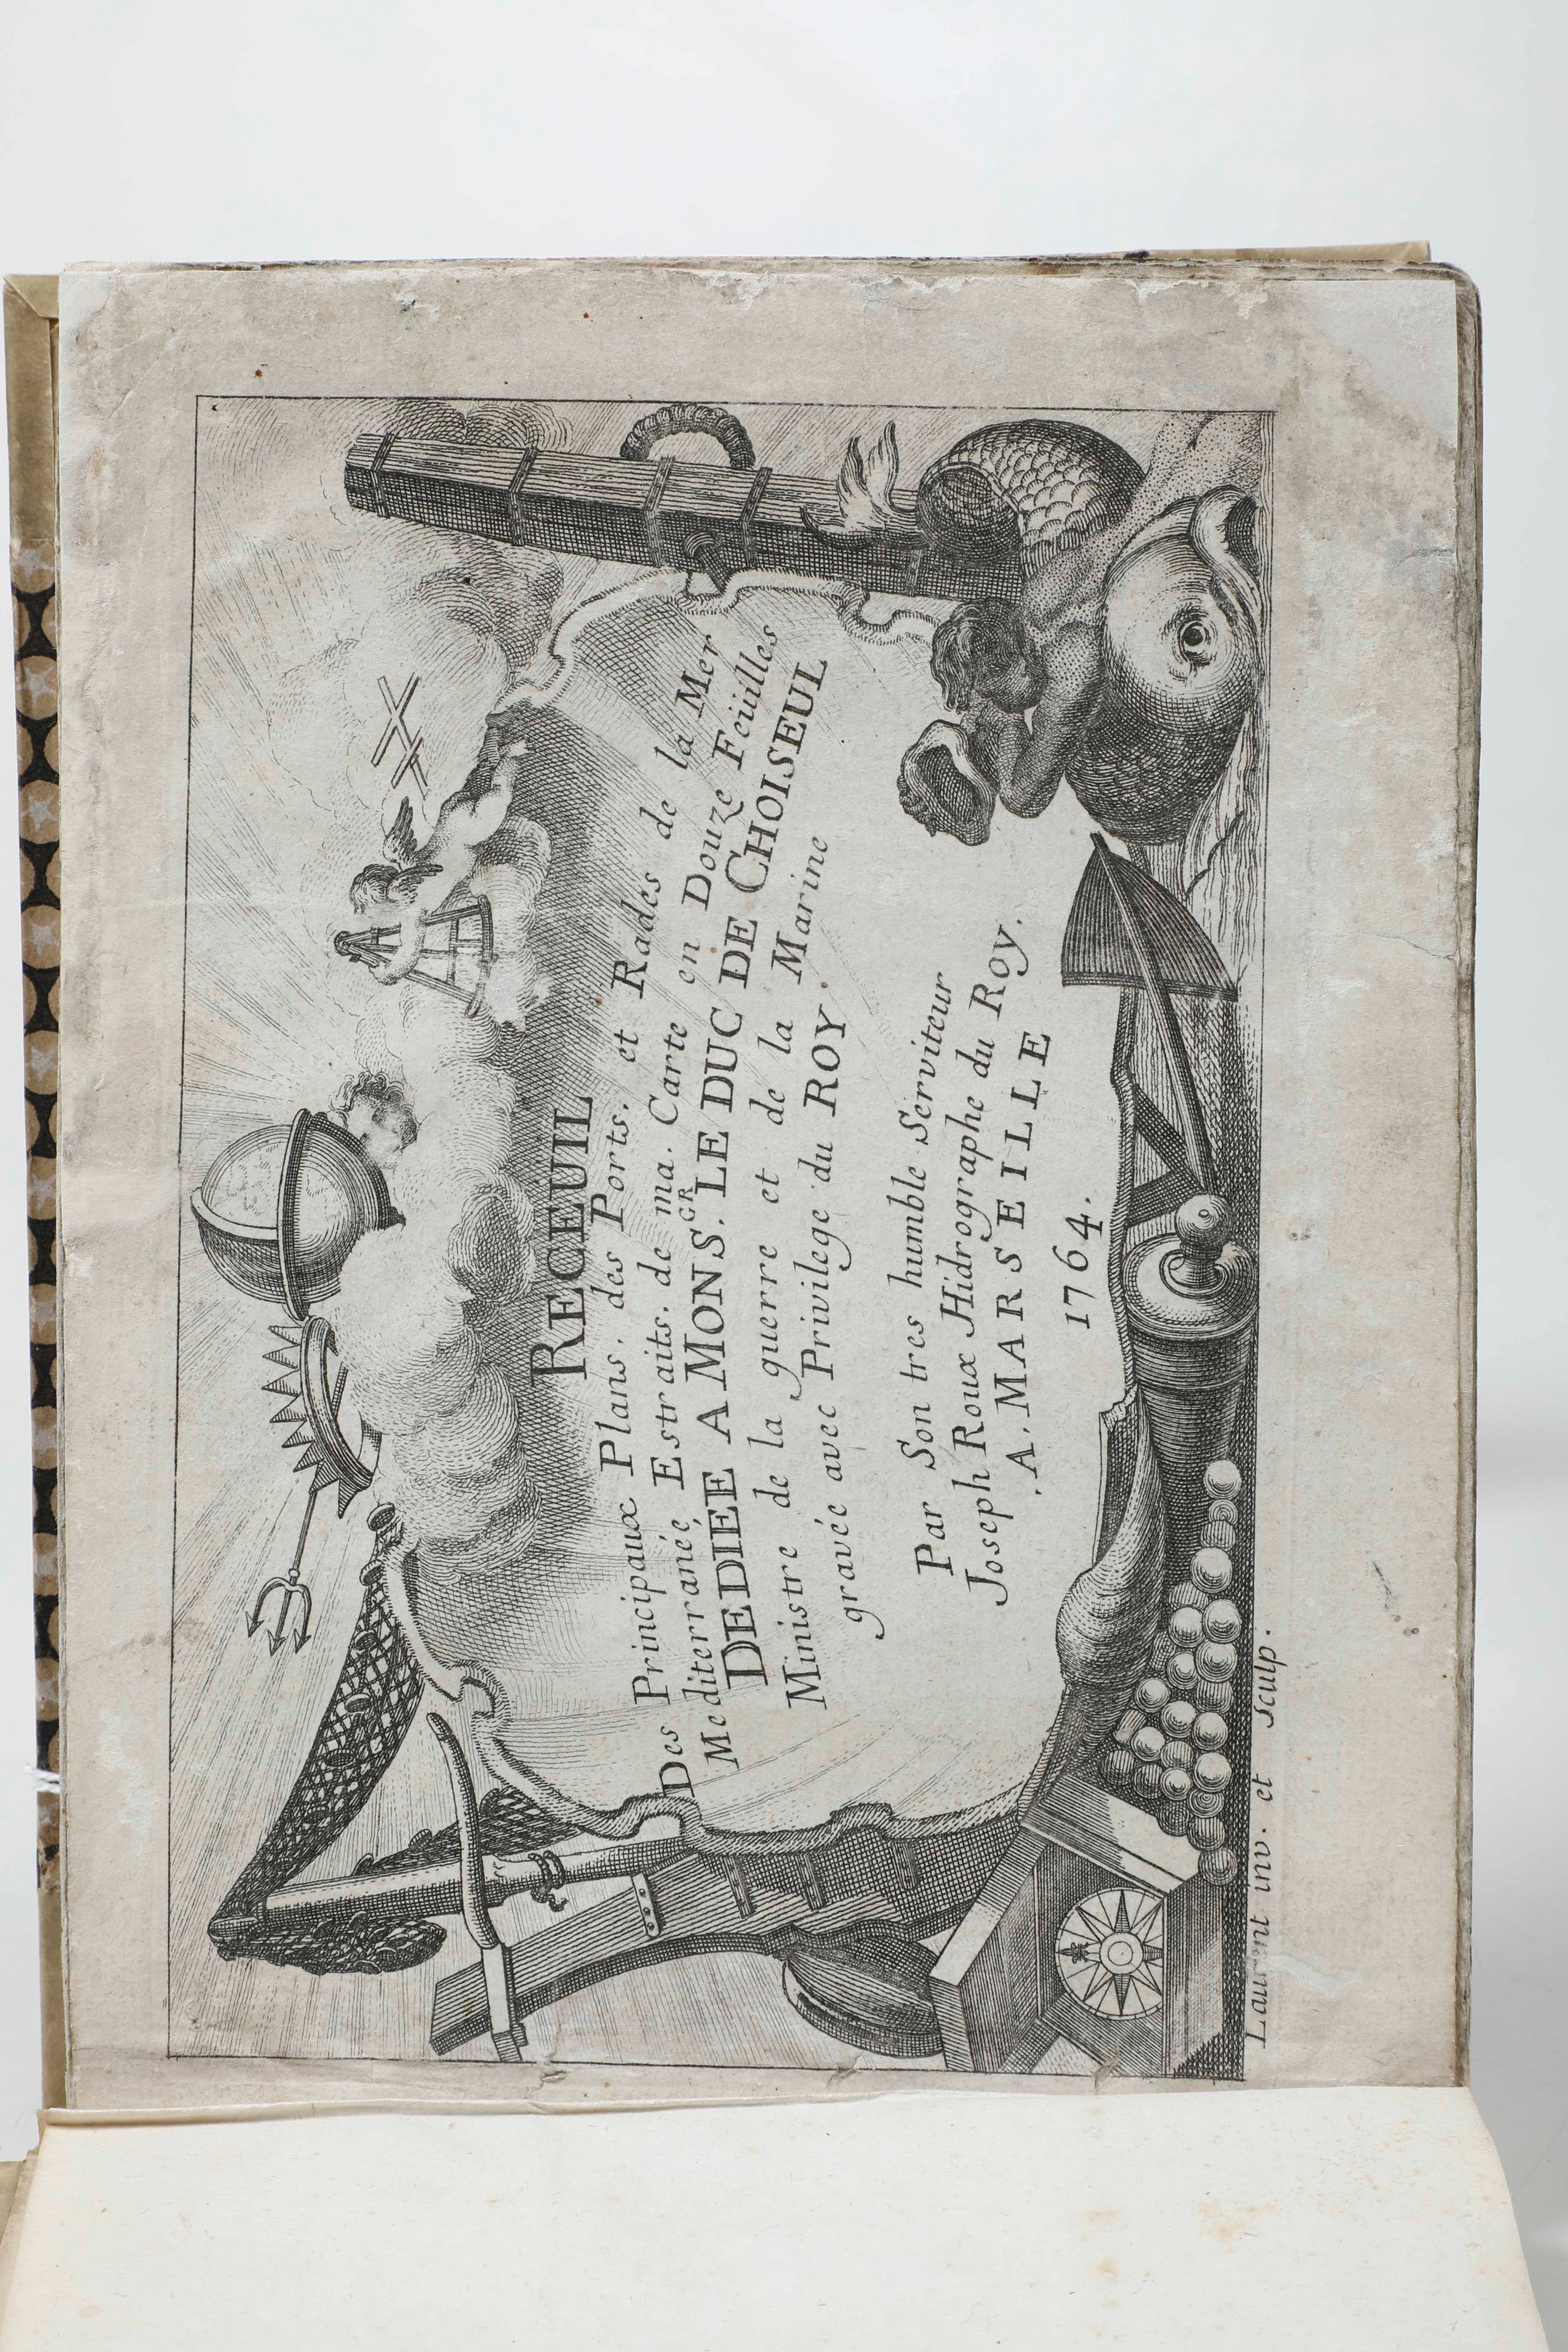 RECEUIL
Des Principaux Plans. des Ports. et Rades de la Mer
Mediterranée Estraits. de ma. Carte en Douze Feüilles
DEDIÉE A MONS.GR LE DUC DE CHOISEUL
Ministre de la guerre et de la Marine
gravée avec Privilege du ROY.
Par Son tres humble Serviteur
Joseph Roux Hidrographe du Roy.
.A.MARSEILLE
1764.
Laurent inv. et Sculp.